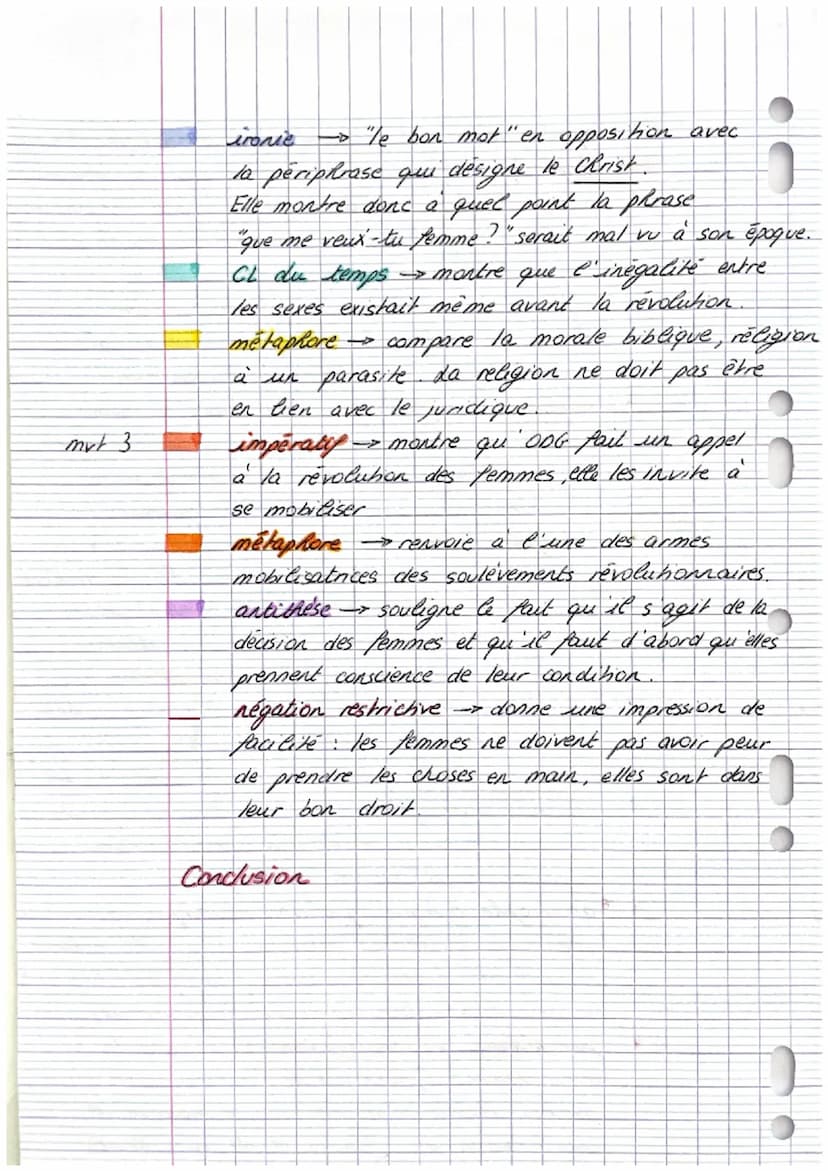 ironie → "le bon mot" en opposition avec
la périphrase qui désigne le Christ.
Elle montre donc à quel point la phrase
"que me veux-tu femme ?" serait mal vu à son époque.
CL du temps → montre que l'inégalité entre
les sexes existait même avant la révolution.
métaphore → compare la morale biblique, réligion
à un parasite. La religion ne doit pas être
en lien avec le juridique.
mvt 3 impératif → montre qu'ODG fait un appel
à la révolution des femmes, elle les invite à
se mobiliser
métaphore → renvoie à l'une des armes
mobilisatrices des soulèvements révolutionnaires.
antithèse → souligne le fait qu'il s'agit de la
décision des femmes et qu'il faut d'abord qu'elles
prennent conscience de leur condition.
négation restrictive → donne une impression de
facilité : les femmes ne doivent pas avoir peur
de prendre les choses en main, elles sont dans
leur bon droit.
Conclusion